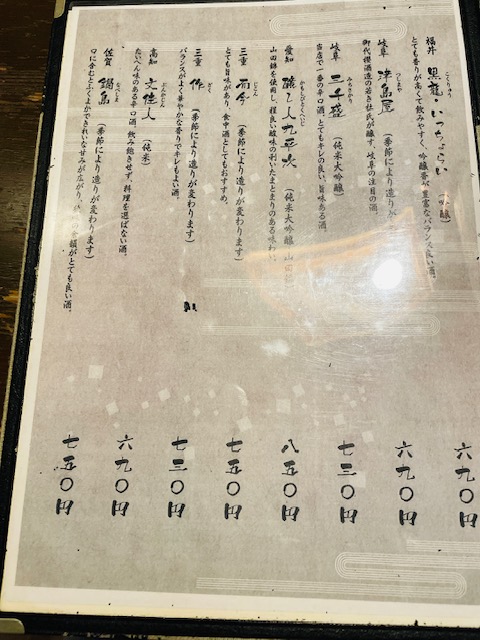 福井 黒龍・いっちょらい 吟醸)
こくりゅう
とても香りが高くて飲みやすく、吟醸香が豊富なバランス良い酒。
六九〇円
岐阜 津島屋 (季節により造りが
つしまや
御代櫻酒造の若き杜氏が醸す、岐阜の注目の酒。
六九〇円
岐阜 三千盛 (純米大吟醸)
みちさかり
当店で一番の辛口酒。とてもキレの良い旨味ある酒。
七三〇円
愛知 醸し人九平次 (純米大吟醸 山田
かもしびとくへいじ
山田錦を使用し、程良い酸味の利いたまとまりのある味わい
八五〇円
三重 而今 (季節により造りが変わります)
じこん
とても旨味があり、食中酒としてもおすすめ。
七五〇円
三重 作 (季節により造りが変わります)
ざく
バランスがよく華やかな香りでキレもよい酒。
七三〇円
高知 文佳人 (純米)
ぶんかじん
たいへん味のある辛口酒。飲み飽きせず、料理を選ばない酒。
六九〇円
佐賀 鍋島 (季節により造りが変わります)
なべしま
口に含むとふくよかできれいな甘みが広がり、 韻がとても良い酒。
七五〇円